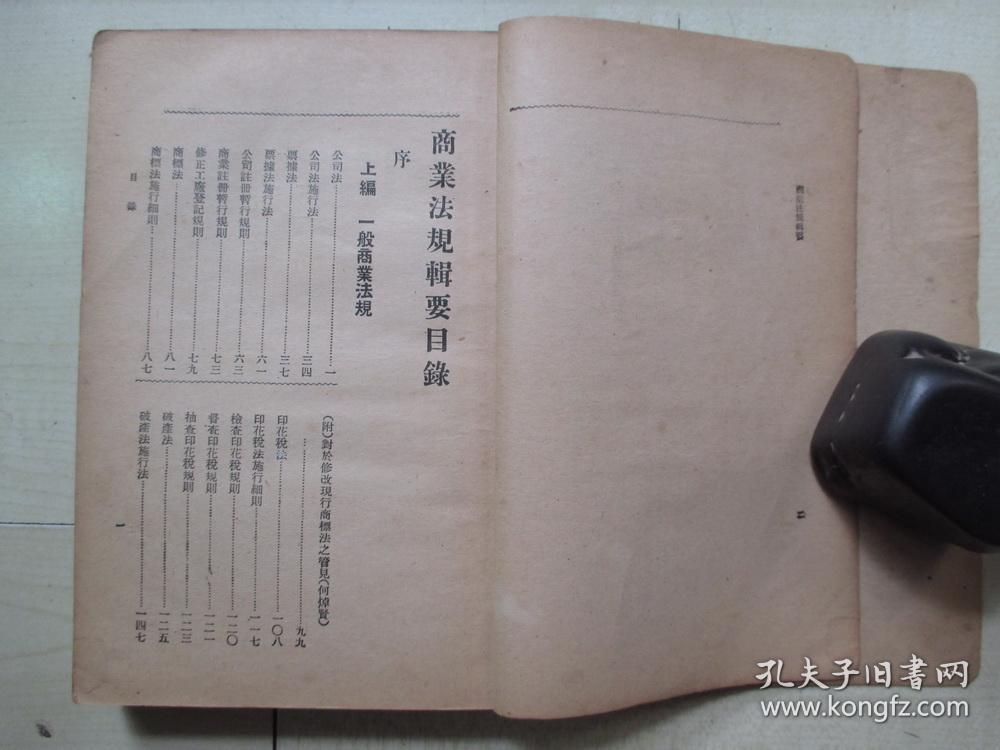 商業法規輯要
二
商業法規輯要目錄
序
上編　一般商業法規
公司法……一
公司法施行法……三四
票據法……三七
票據法施行法……六一
公司註冊暫行規則……六三
商業註冊暫行規則……七三
修正工廠登記規則……七九
商標法……八一
商標法施行細則……八七
(附)對於修改現行商標法之管見(何焯賢)
……九九
印花稅法……一〇八
印花稅法施行細則……一一七
檢查印花稅規則……一二〇
督查印花稅規則……一二一
抽查印花稅規則……一二三
破產法……一二五
破產法施行法……一四七
目錄
一
孔夫子旧書网
www.kongfz.com